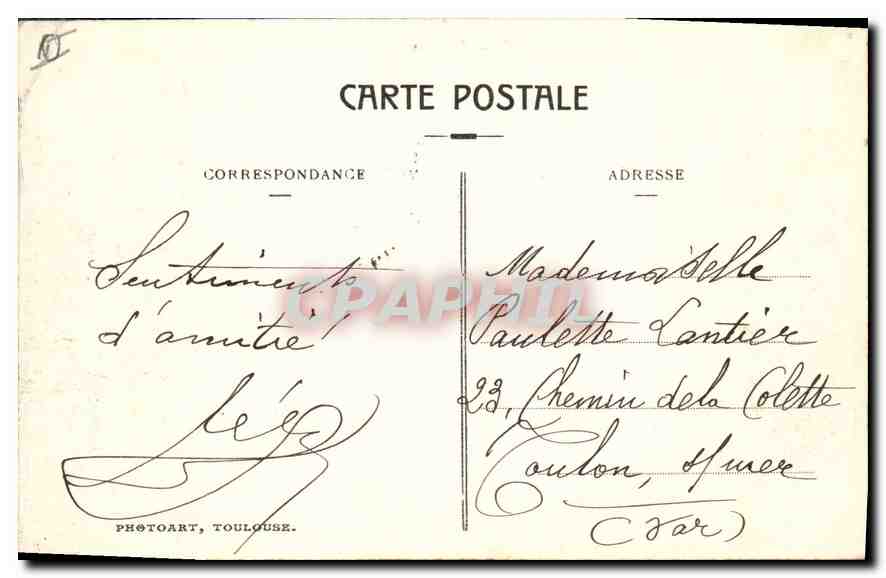 CARTE POSTALE
CORRESPONDANCE
Sentiments
d'amitié
PHOTOART, TOULOUSE.
ADRESSE
Mademoiselle
Paulette Lantier
23, Chemin de la Colette
Toulon, s/mer
(Var)
CPAPHIL